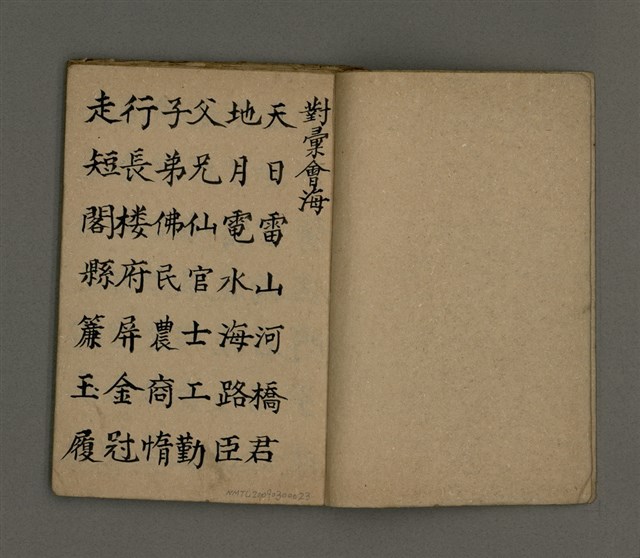 對彙會海
天日雷山河橋君
地月電水海路臣
父兄仙官士工勤
子弟佛民農商惰
行長楼府屏金冠
走短閣縣簾玉履